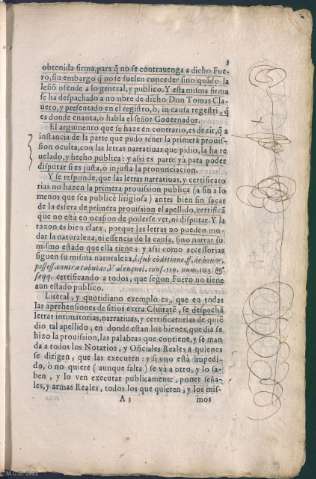 3
obtenida firma, para q̃ no se contravenga a dicho Fue-
ro, sin embargo q̃ no se suelen conceder sino quãdo la
lesiõ ofende a lo general, y publico. Y esta misma firma
se ha despachado a nombre de dicho Don Tomas Cla-
vero, y presentado en el registro, õ, in causa regestri, q̃
es donde enanta, õ habla el señor Governador.
El argumento que se haze en contrario, es dezir, q̃ a
instancia de la parte que pudo tener la primera provis-
sion oculta, con las letras narrativas que pidio, la ha re
velado, y hecho publica: y assi es parte ya para poder
disputar si es justa, o injusta la pronunciacion.
Y se responde, que las letras narrativas, y certificato-
rias no hazen la primera provission publica (a sin a lo
menos que sea publicè litigiosa) antes bien sin sacar
de la esfera de primera provission el apellido, certificã
que no està en ocasion de poderse ver, ni disputar. Y la
razon es bien clara, porque las letras no pueden mu-
dar la naturaleza, ni essencia de la causa, sino narrar su
mismo estado que ella tiene: y assi como accessorias
siguen su misma naturaleza,
seqq. certificando a todos, que segun Fuero no tiene
aun estado publico.
Literal, y quotidiano exemplo es, que en todas
las aprehensiones de sitios extra Civitatẽ, se despachã
letras intimatorias, narrativas, y certificatorias de quiẽ
dio tal apellido, en donde estàn los bienes, que dia se
hizo la provission, las palabras que contiene, y se man-
da a todos los Notarios, y Oficiales Reales a quienes
se dirigen, que las executen: y si uno està impedi-
do, ò no quiere (aunque salta) se và a otro, y lo sa-
ben, y lo ven executar publicamente, poner seña-
les, y armas Reales, todos los que quieren, y los mis-
A 3
mos